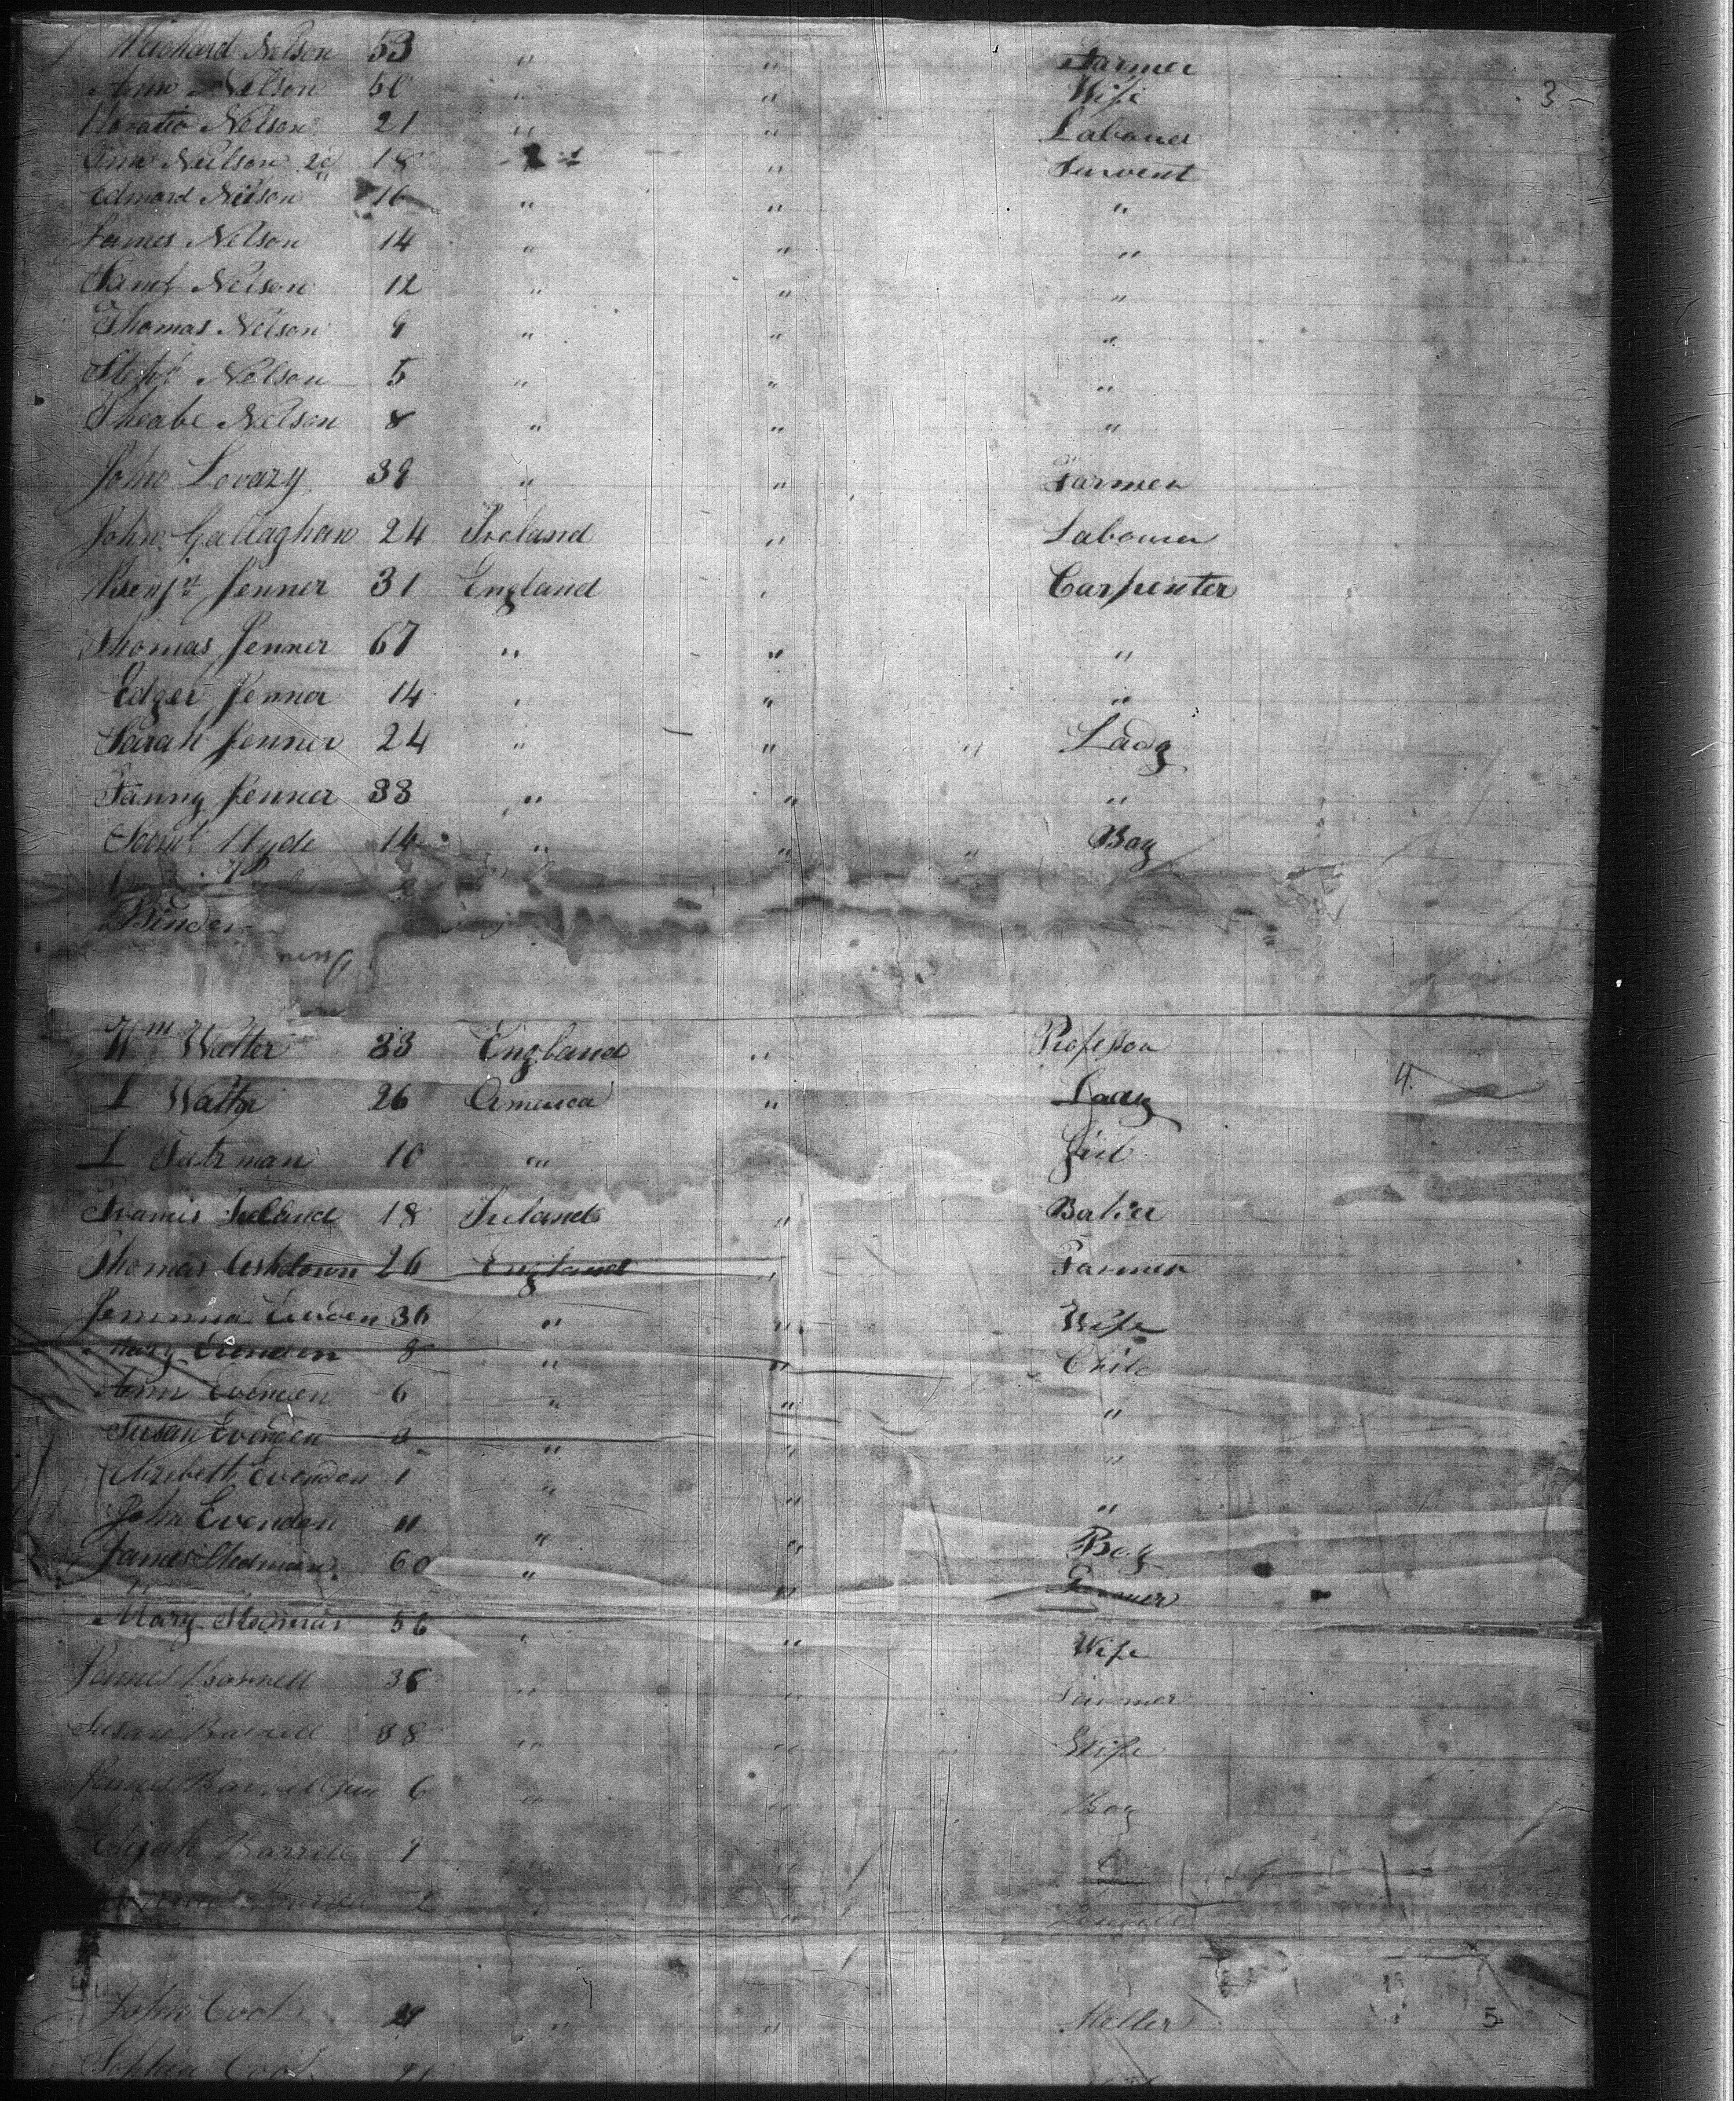 Richard Nelson 53 " " Farmer
Ann Nelson 50 " " Wife 3
Horatio Nelson 21 " " Labourer
Ann Nelson 2d 18 " " Servent
Edmard Nelson 16 " " "
James Nelson 14 " " "
Saml Nelson 12 " " "
Thomas Nelson 9 " " "
Stepn Nelson 5 " " "
Pheabe Nelson 8 " " "
John Lovary 39 " " Farmer
John Gallaghan 24 Ireland " Labourer
Benjn Jenner 31 England " Carpenter
Thomas Jenner 67 " " "
Edger Jenner 14 " " "
Sarah Jenner 24 " " " Lady
Fanny Jenner 33 " " "
Saml Hyde 14 " " " Boy
Binder
Wm Walter 33 England " Professor
L Walter 26 America " Lady 4
L 10 " Girl
Francis Ireland 18 Ireland " Baker
Thomas Ashdown 26 England " Farmer
Jemima Evenden 36 " " Wife
Mary Evenden 8 " " Child
Ann Evenden 6 " " "
Susan Evenden " " "
Elizebeth Evenden 1 " " "
John Evenden 11 " " Boy
James Stedman 60 " " Farmer
Mary Stedman 56 " " Wife
James Barrell 38 " " Farmer
Susan Barrell 38 " " Wife
James Barrell Jun 6 " " Boy
Elijah Barrell 9 " "
2 "
John Cook 21 " " Meller 5
Sophia Cook 21